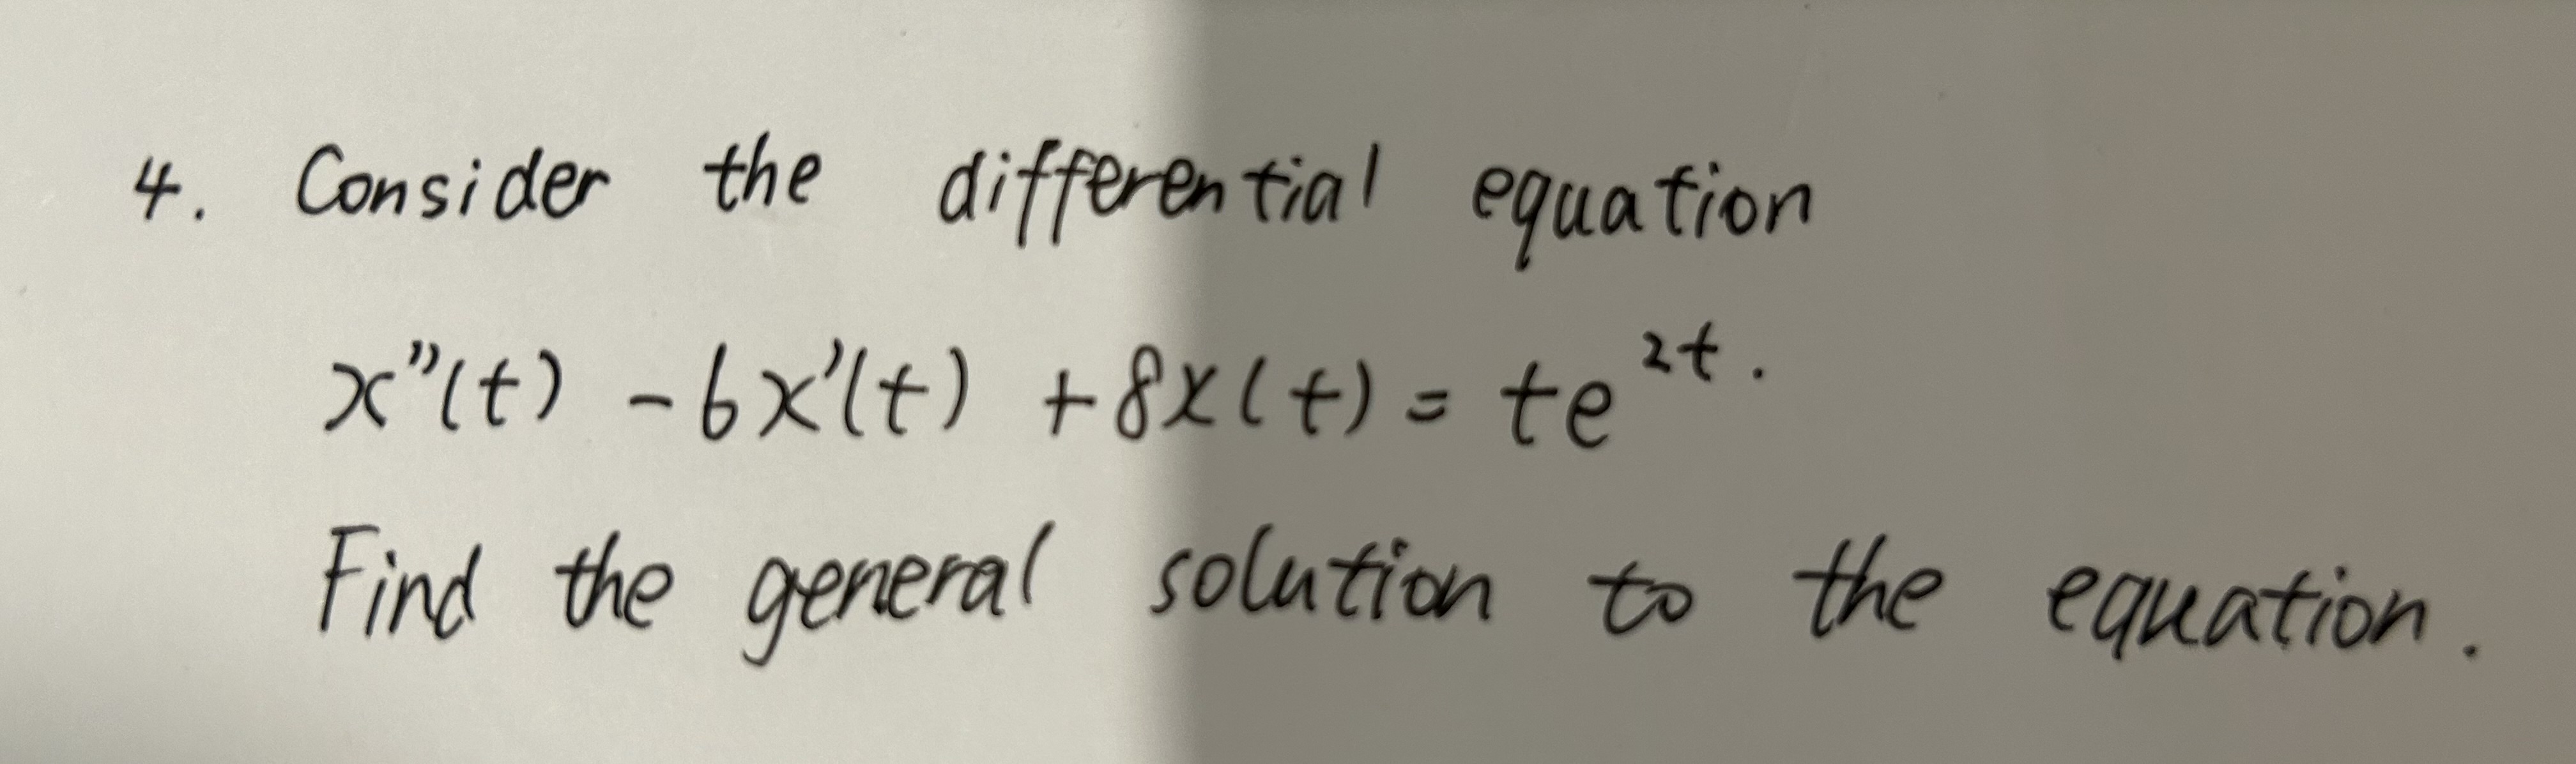 4. Consider the differential equation
x''(t) - 6x'(t) + 8x(t) = te^{2t}.
Find the general solution to the equation.